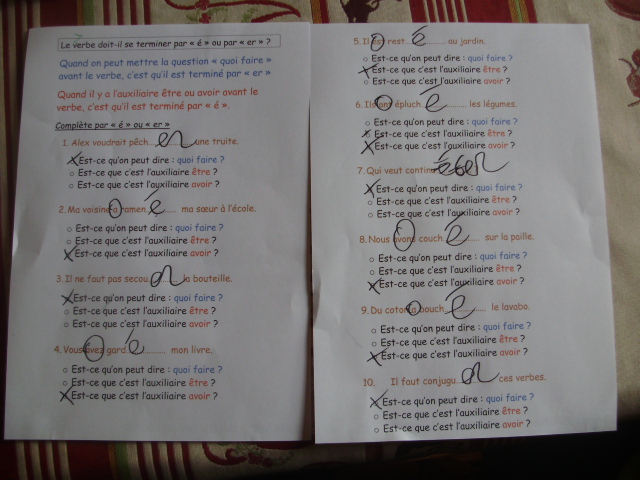 Le verbe doit-il se terminer par « é » ou par « er » ?
Quand on peut mettre la question « quoi faire »
avant le verbe, c'est qu'il est terminé par « er »
Quand il y a l'auxiliaire être ou avoir avant le
verbe, c'est qu'il est terminé par « é ».
Complète par « é » ou « er »
1. Alex voudrait pêch...er...une truite.
X Est-ce qu'on peut dire : quoi faire ?
Est-ce que c'est l'auxiliaire être ?
Est-ce que c'est l'auxiliaire avoir ?
2. Ma voisine a ramen...é... ma sœur à l'école.
Est-ce qu'on peut dire : quoi faire ?
Est-ce que c'est l'auxiliaire être ?
X Est-ce que c'est l'auxiliaire avoir ?
3. Il ne faut pas secou...er...la bouteille.
X Est-ce qu'on peut dire : quoi faire ?
Est-ce que c'est l'auxiliaire être ?
Est-ce que c'est l'auxiliaire avoir ?
4. Vous avez gard...é... mon livre.
Est-ce qu'on peut dire : quoi faire ?
Est-ce que c'est l'auxiliaire être ?
X Est-ce que c'est l'auxiliaire avoir ?
5. Il est rest...é... au jardin.
Est-ce qu'on peut dire : quoi faire ?
X Est-ce que c'est l'auxiliaire être ?
Est-ce que c'est l'auxiliaire avoir ?
6. Ils ont épluch...é... les légumes.
Est-ce qu'on peut dire : quoi faire ?
X Est-ce que c'est l'auxiliaire être ?
X Est-ce que c'est l'auxiliaire avoir ?
7. Qui veut continu...er ?
X Est-ce qu'on peut dire : quoi faire ?
Est-ce que c'est l'auxiliaire être ?
Est-ce que c'est l'auxiliaire avoir ?
8. Nous avons couch...é... sur la paille.
Est-ce qu'on peut dire : quoi faire ?
Est-ce que c'est l'auxiliaire être ?
X Est-ce que c'est l'auxiliaire avoir ?
9. Du coton a bouch...é... le lavabo.
Est-ce qu'on peut dire : quoi faire ?
Est-ce que c'est l'auxiliaire être ?
X Est-ce que c'est l'auxiliaire avoir ?
10. Il faut conjugu...er...ces verbes.
X Est-ce qu'on peut dire : quoi faire ?
Est-ce que c'est l'auxiliaire être ?
Est-ce que c'est l'auxiliaire avoir ?